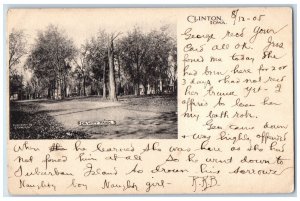 CLINTON,
IOWA.
8/12-05
George recd your
Card all ok. Iras
foned me today she
had been here for 2 or
3 days & has not recd
her trunk yet - I
offered to loan her
my bath robe.
Geo. came down
& was highly offended
when he learned she was here as she had
not foned him at all. So he went down to
Suburban Island to drown his sorrow.
Naughty boy Naughty girl -